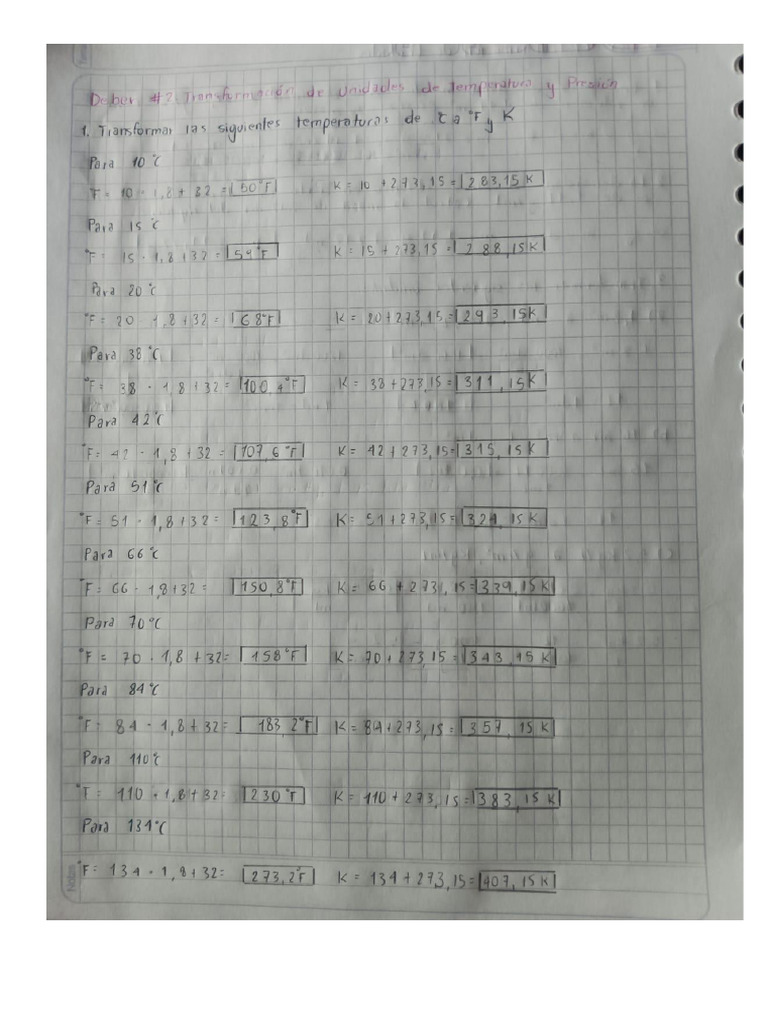 Deber #2 Transformación de unidades de Temperatura y Presión
1. Transformar las siguientes temperaturas de °C a °F y K
Para 10°C
°F = 10 · 1,8 + 32 = 50°F K = 10 + 273,15 = 283,15 K
Para 15°C
°F = 15 · 1,8 + 32 = 59°F K = 15 + 273,15 = 288,15 K
Para 20°C
°F = 20 · 1,8 + 32 = 68°F K = 20 + 273,15 = 293,15 K
Para 38°C
°F = 38 · 1,8 + 32 = 100,4°F K = 38 + 273,15 = 311,15 K
Para 42°C
°F = 42 · 1,8 + 32 = 107,6°F K = 42 + 273,15 = 315,15 K
Para 51°C
°F = 51 · 1,8 + 32 = 123,8°F K = 51 + 273,15 = 324,15 K
Para 66°C
°F = 66 · 1,8 + 32 = 150,8°F K = 66 + 273,15 = 339,15 K
Para 70°C
°F = 70 · 1,8 + 32 = 158°F K = 70 + 273,15 = 343,15 K
Para 84°C
°F = 84 · 1,8 + 32 = 183,2°F K = 84 + 273,15 = 357,15 K
Para 110°C
°F = 110 · 1,8 + 32 = 230°F K = 110 + 273,15 = 383,15 K
Para 134°C
°F = 134 · 1,8 + 32 = 273,2°F K = 134 + 273,15 = 407,15 K
Notas